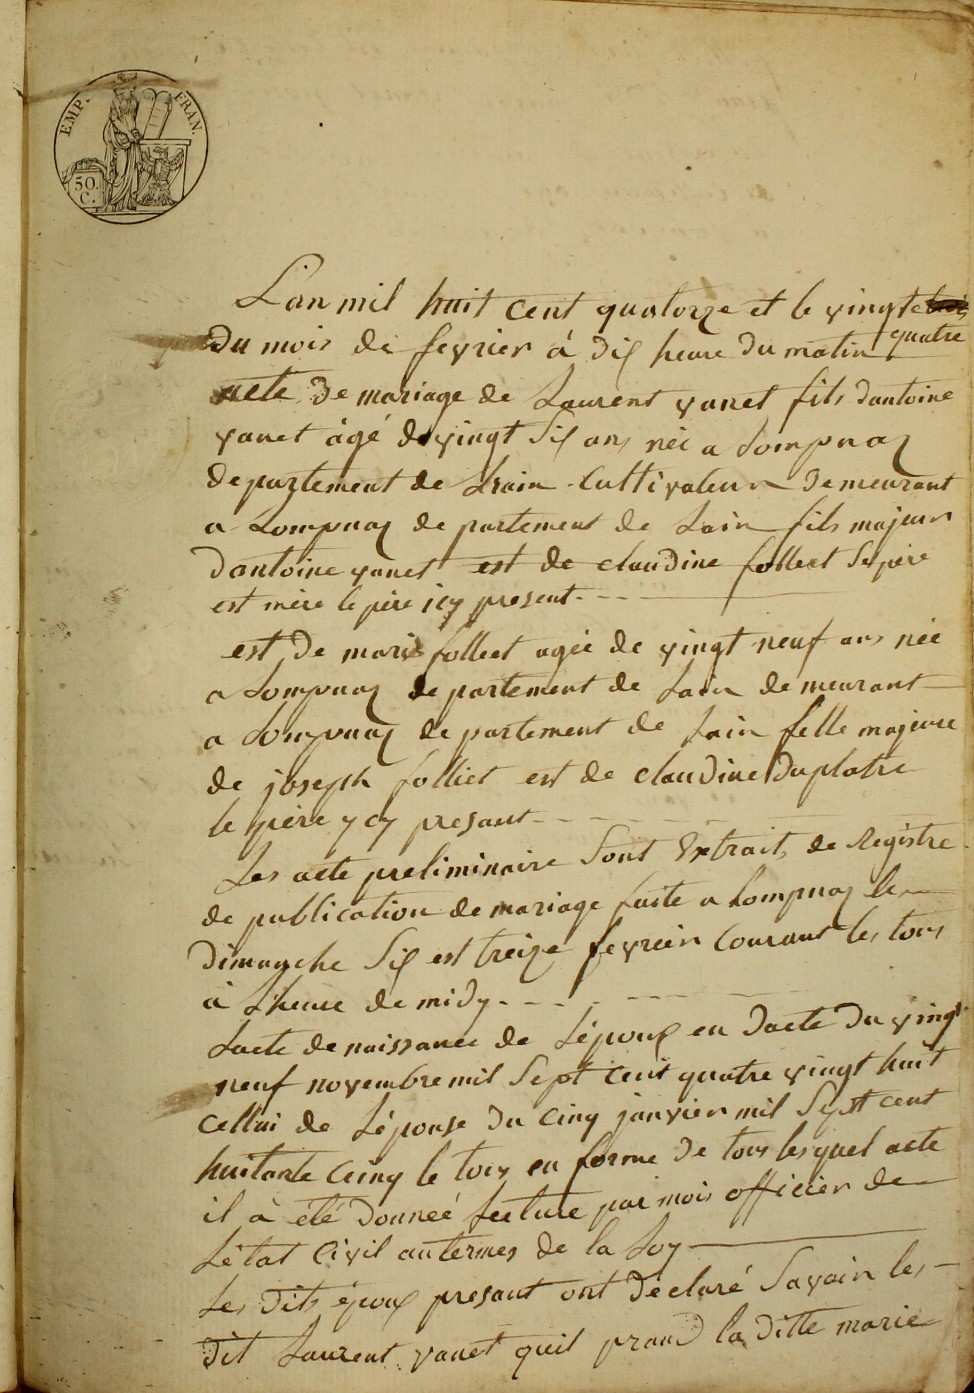 EMP. FRAN.
50.
C.
Lan mil huit cent quatorze et le vingt
quatre
du mois de fevrier à dix heure du matin
acte de mariage de Laurent vanet fils dantoine
vanet âgé de vingt six ans née a Lompnaz
departement de Lrain Cultivateur demeurant
a Lompnaz departement de Lain fils majeur
dantoine vanet est de claudine follect Se père
est mère le père icy present
est de marie follect agée de vingt neuf ans née
a Lompnaz departement de Lain demeurant
a Lompnaz departement de Lain felle majeure
de joseph folliet est de claudine Duplatre
le père ycy presant
Les acte preliminaire Sont Extrait de Registre
de publication de mariage faite a Lompnaz le
Dimanche Six est treize fevrier Courant les tous
à Lheure de midy
Lacte de naissance de Lépoux en dacte du vingt
neuf novembre mil Sept cent quatre vingt huit
cellui de Lépouse du cinq janvier mil Sept cent
huitante cinq le tous en forme de tous lesquel acte
il à été donneé Lecture par mois officier de
Létat Civil au termes de la Loy
Les dits époux presant ont declaré Savoir les
dit Laurent vanet quil prand la ditte marie